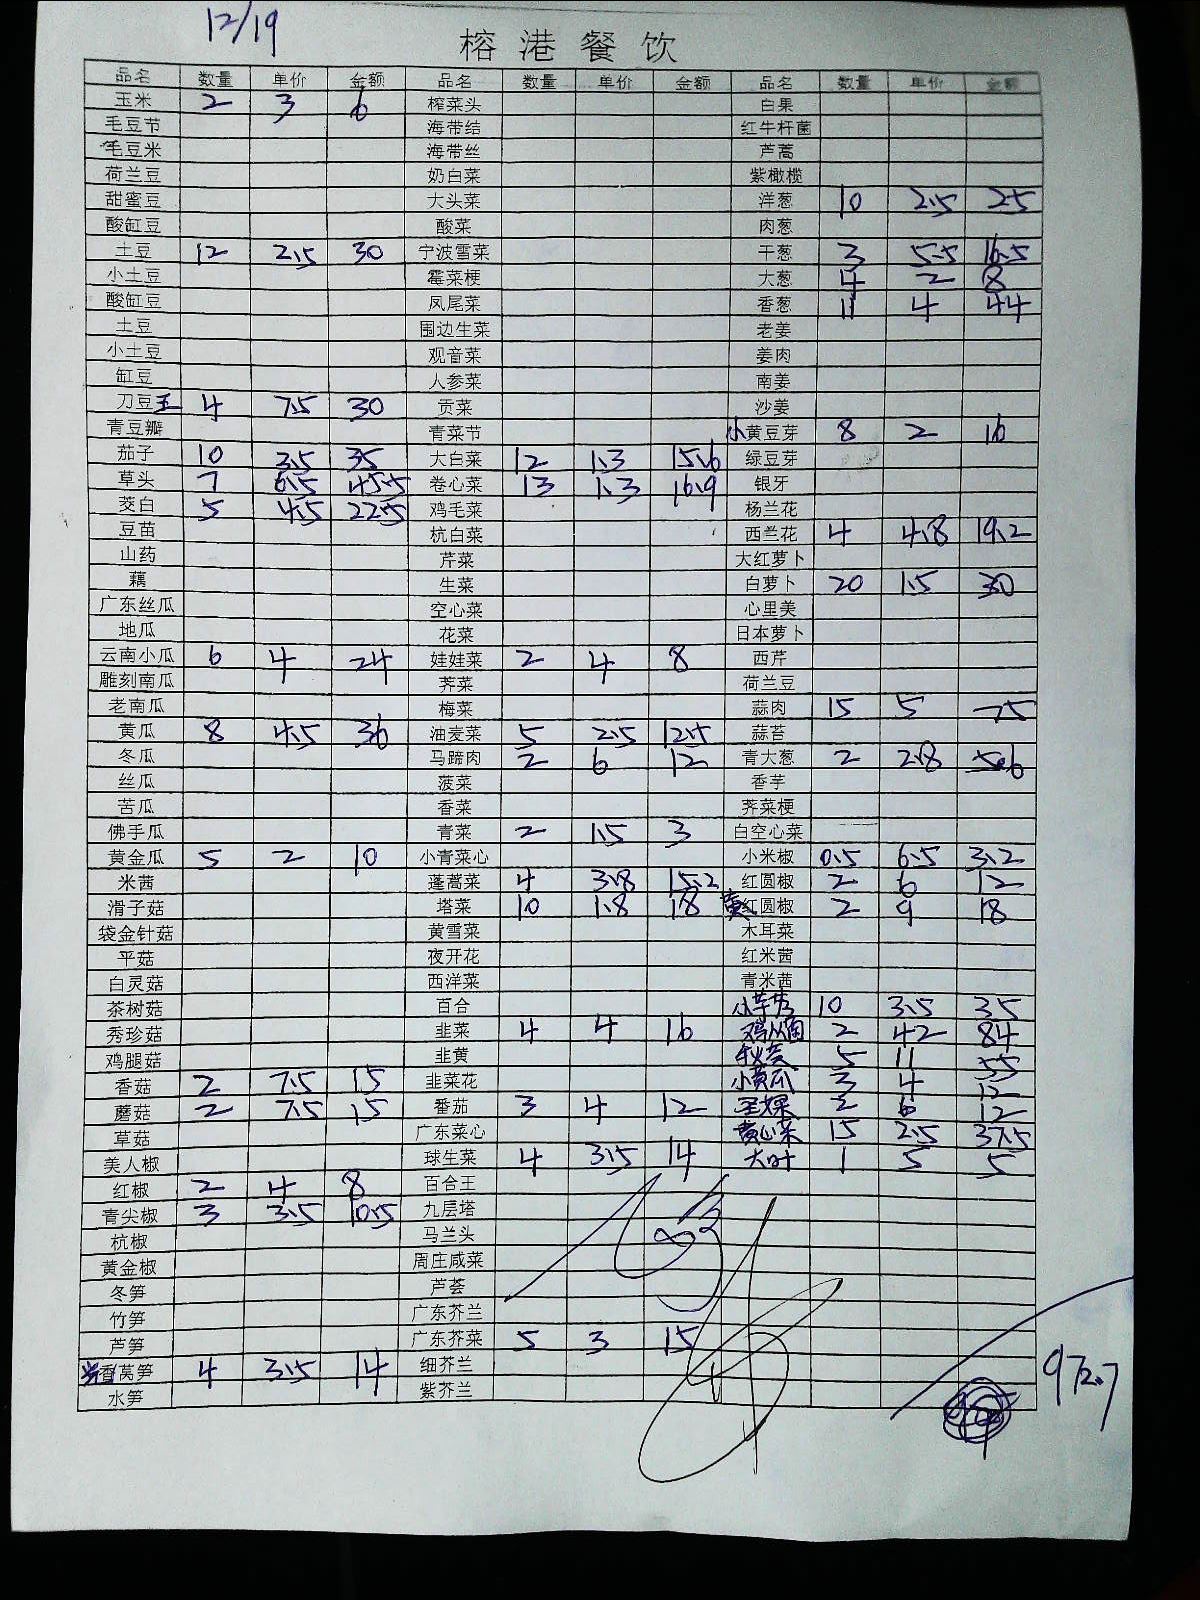 12/19
榕港餐饮
品名 数量 单价 金额 品名 数量 单价 金额 品名 数量 单价 金额
玉米 2 3 6 榨菜头 白果
毛豆节 海带结 红牛杆菌
毛豆米 海带丝 芦蒿
荷兰豆 奶白菜 紫橄榄
甜蜜豆 大头菜 洋葱 10 2.5 25
酸缸豆 酸菜 肉葱
土豆 12 2.5 30 宁波雪菜 干葱 3 5.5 16.5
小土豆 霉菜梗 大葱 4 2 8
酸缸豆 凤尾菜 香葱 11 4 44
土豆 围边生菜 老姜
小土豆 观音菜 姜肉
缸豆 人参菜 南姜
刀豆王 4 7.5 30 贡菜 沙姜
青豆瓣 青菜节 小黄豆芽 8 2 16
茄子 10 3.5 35 大白菜 12 1.3 15.6 绿豆芽
草头 7 6.5 45.5 卷心菜 13 1.3 16.9 银牙
茭白 5 4.5 22.5 鸡毛菜 杨兰花
豆苗 杭白菜 西兰花 4 4.8 19.2
山药 芹菜 大红萝卜
藕 生菜 白萝卜 20 1.5 30
广东丝瓜 空心菜 心里美
地瓜 花菜 日本萝卜
云南小瓜 6 4 24 娃娃菜 2 4 8 西芹
雕刻南瓜 荠菜 荷兰豆
老南瓜 梅菜 蒜肉 15 5 75
黄瓜 8 4.5 36 油麦菜 5 2.5 12.5 蒜苔
冬瓜 马蹄肉 2 6 12 青大葱 2 2.8 5.6
丝瓜 菠菜 香芋
苦瓜 香菜 荠菜梗
佛手瓜 青菜 2 1.5 3 白空心菜
黄金瓜 5 2 10 小青菜心 小米椒 0.5 6.5 3.2
米茜 蓬蒿菜 4 3.8 15.2 红圆椒 2 6 12
滑子菇 塔菜 10 1.8 18 黄红圆椒 2 9 18
袋金针菇 黄雪菜 木耳菜
平菇 夜开花 红米茜
白灵菇 西洋菜 青米茜
茶树菇 百合 小芋艿 10 3.5 35
秀珍菇 韭菜 4 4 16 鸡从菌 2 42 84
鸡腿菇 韭黄 5 11 55
香菇 2 7.5 15 韭菜花 小黄瓜 3 4 12
蘑菇 2 7.5 15 番茄 3 4 12 圣果 2 6 12
草菇 广东菜心 黄心菜 15 2.5 37.5
美人椒 球生菜 4 3.5 14 大叶 1 5 5
红椒 2 4 8 百合王
青尖椒 3 3.5 10.5 九层塔
杭椒 马兰头
黄金椒 周庄咸菜
冬笋 芦荟
竹笋 广东芥兰
芦笋 广东芥菜 5 3 15
香莴笋 4 3.5 14 细芥兰
水笋 紫芥兰
972.7